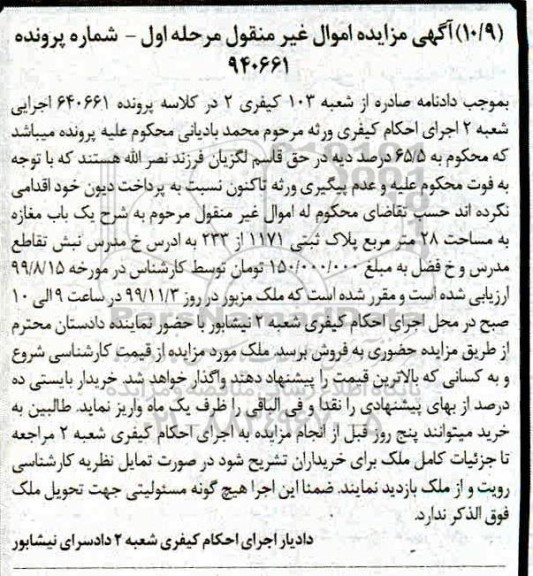 (۱۰/۹) آگهی مزایده اموال غیر منقول مرحله اول - شماره پرونده
۹۴۰۶۶۱
بموجب دادنامه صادره از شعبه ۱۰۳ کیفری ۲ در کلاسه پرونده ۶۴۰۶۶۱ اجرایی
شعبه ۲ اجرای احکام کیفری ورثه مرحوم محمد بادیانی محکوم علیه پرونده میباشد
که محکوم به ۶۵/۵ درصد دیه در حق قاسم لگزیان فرزند نصر الله هستند که با توجه
به فوت محکوم علیه و عدم پیگیری ورثه تاکنون نسبت به پرداخت دیون خود اقدامی
نکرده اند حسب تقاضای محکوم له اموال غیر منقول مرحوم به شرح یک باب مغازه
به مساحت ۲۸ متر مربع پلاک ثبتی ۱۱۷۱ از ۲۳۳ به ادرس خ مدرس نبش تقاطع
مدرس و خ فضل به مبلغ ۱۵۰/۰۰۰/۰۰۰ تومان توسط کارشناس در مورخه ۹۹/۸/۱۵
ارزیابی شده است و مقرر شده است که ملک مزبور در روز ۹۹/۱۱/۳ در ساعت ۹ الی ۱۰
صبح در محل اجرای احکام کیفری شعبه ۲ نیشابور با حضور نماینده دادستان محترم
از طریق مزایده حضوری به فروش برسد. ملک مورد مزایده از قیمت کارشناسی شروع
و به کسانی که بالاترین قیمت را پیشنهاد دهند واگذار خواهد شد. خریدار بایستی ده
درصد از بهای پیشنهادی را نقدا و فی الباقی را ظرف یک ماه واریز نماید. طالبین به
خرید میتوانند پنج روز قبل از انجام مزایده به اجرای احکام کیفری شعبه ۲ مراجعه
تا جزئیات کامل ملک برای خریداران تشریح شود در صورت تمایل نظریه کارشناسی
رویت و از ملک بازدید نمایند. ضمنا این اجرا هیچ گونه مسئولیتی جهت تحویل ملک
فوق الذکر ندارد.
دادیار اجرای احکام کیفری شعبه ۲ دادسرای نیشابور